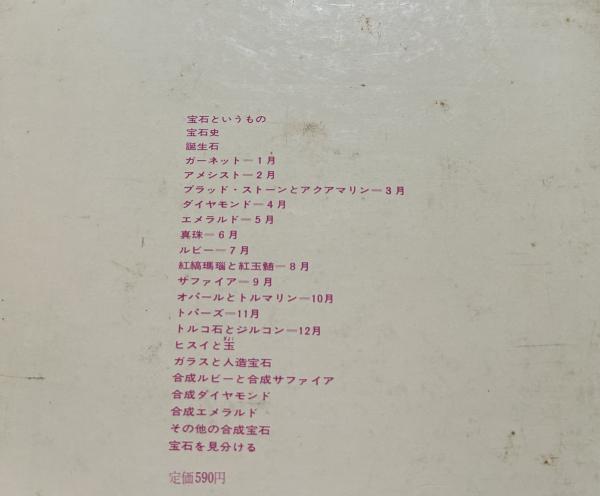 宝石というもの
宝石史
誕生石
ガーネット—1月
アメシスト—2月
ブラッド・ストーンとアクアマリン—3月
ダイヤモンド—4月
エメラルド—5月
真珠—6月
ルビー—7月
紅縞瑪瑙と紅玉髄—8月
サファイア—9月
オパールとトルマリン—10月
トパーズ—11月
トルコ石とジルコン—12月
ヒスイと玉
ガラスと人造宝石
合成ルビーと合成サファイア
合成ダイヤモンド
合成エメラルド
その他の合成宝石
宝石を見分ける
定価590円